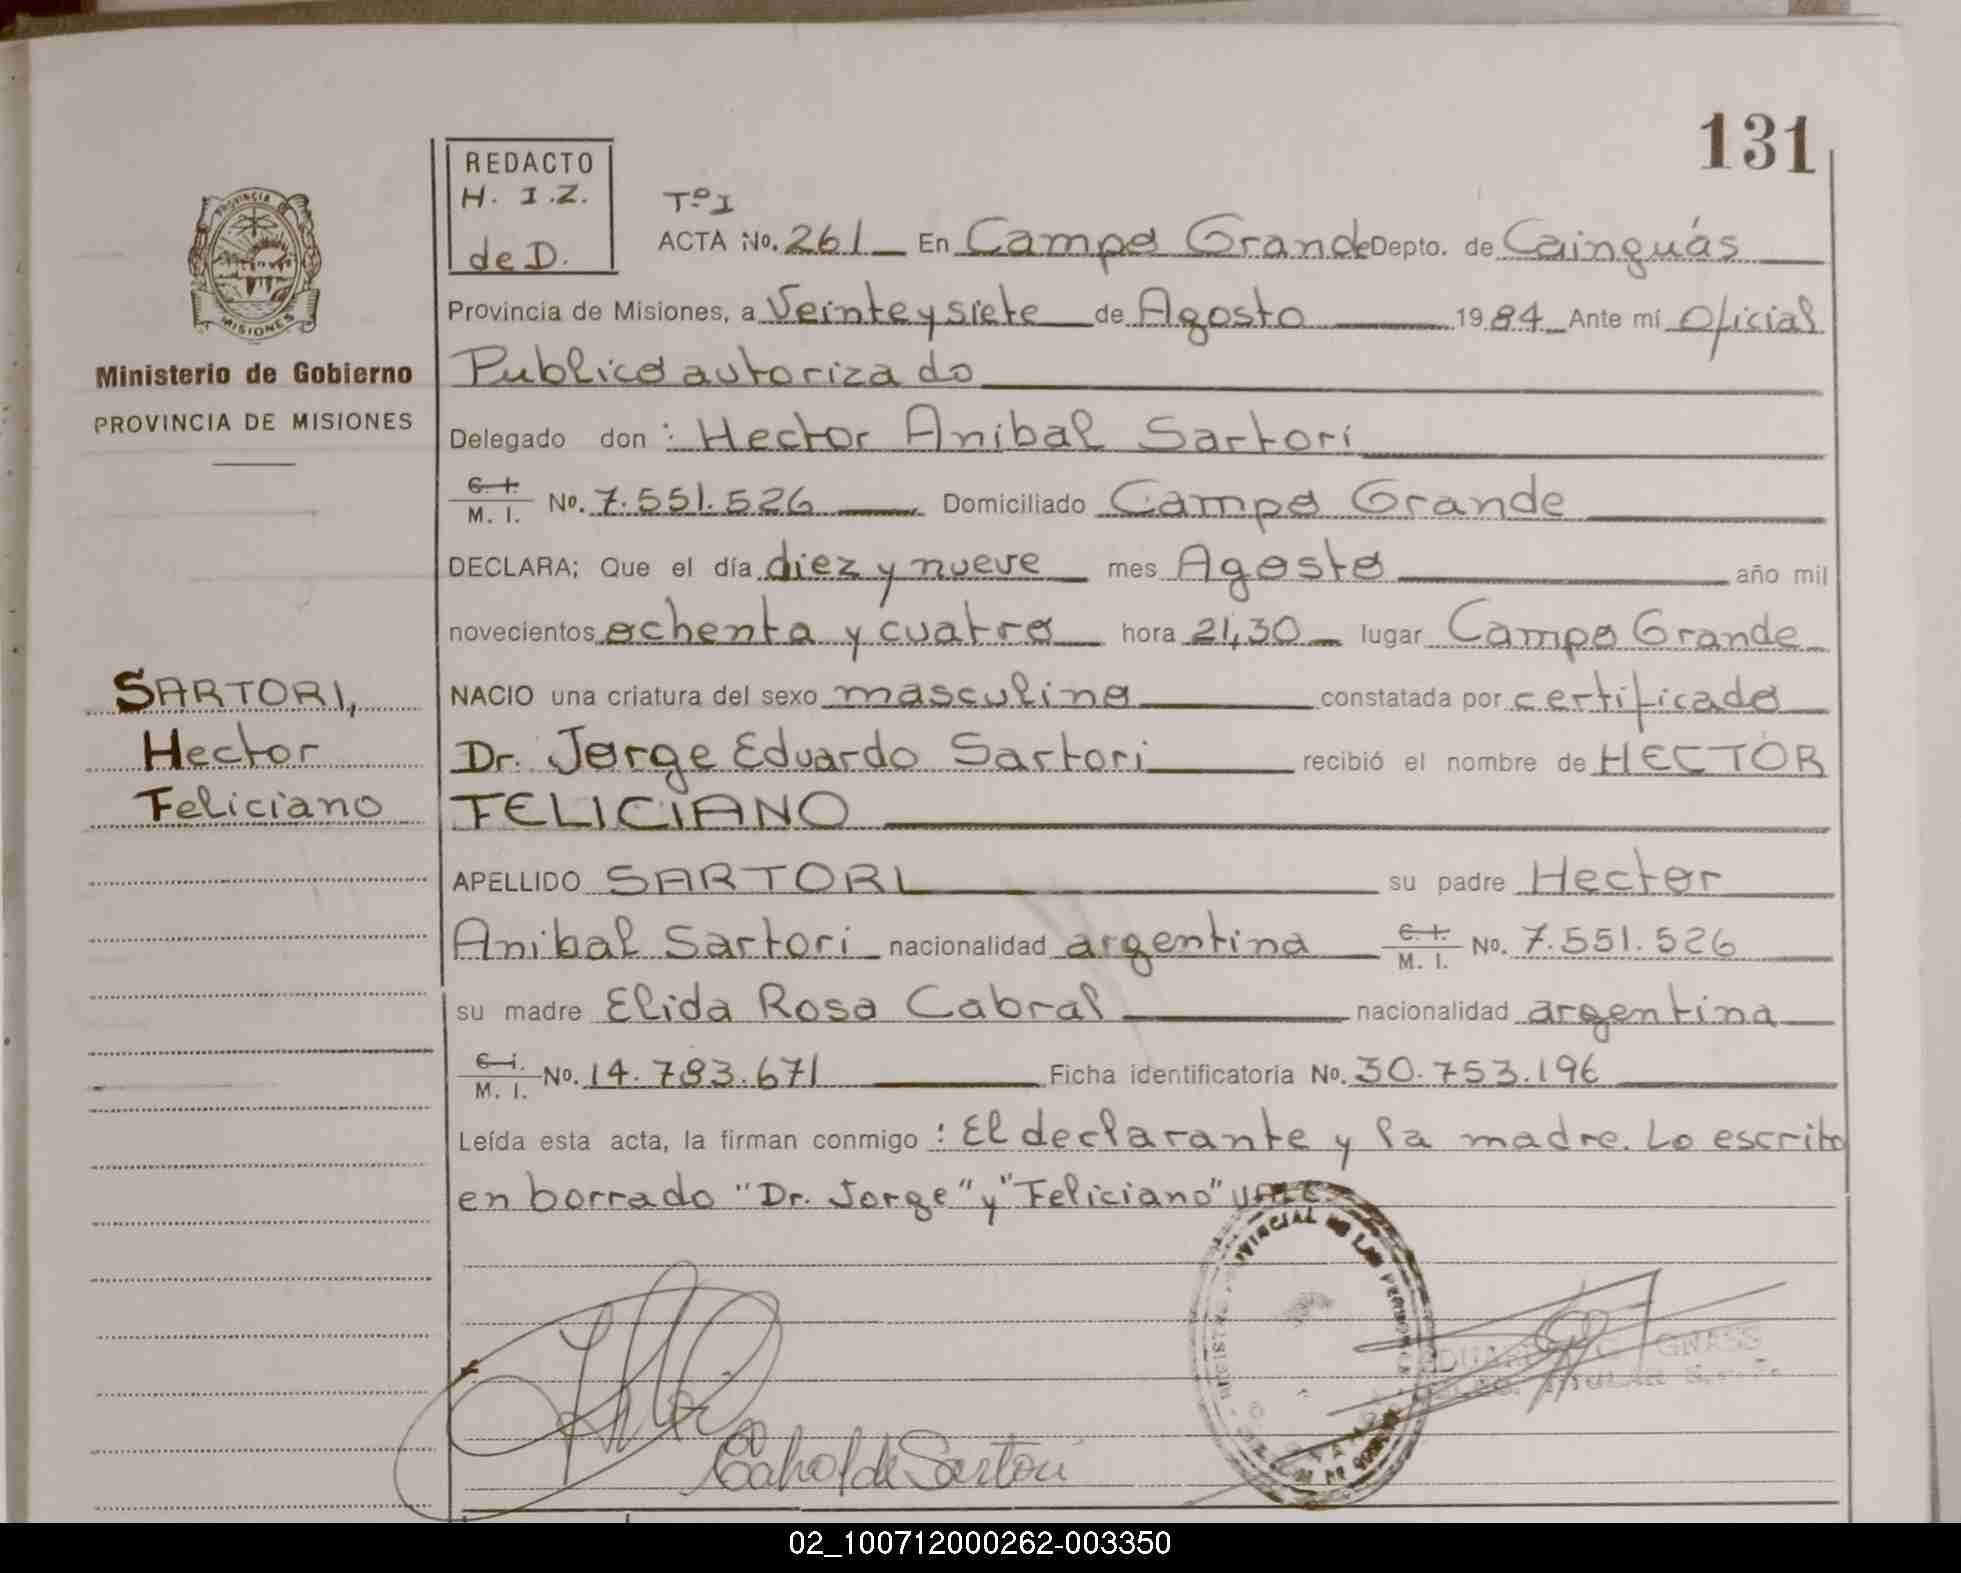 131
REDACTO
H. I.Z.
de D.
PROVINCIA
MISIONES
Ministerio de Gobierno
PROVINCIA DE MISIONES
Tº I
ACTA No. 261 En Campo Grande Depto. de Cainguás
Provincia de Misiones, a Veinte y siete de Agosto 1984 Ante mí Oficial
Publico autorizado
Delegado don : Hector Anibal Sartori
C. I. M. I. No. 7.551.526 Domiciliado Campo Grande
DECLARA; Que el día diez y nueve mes Agosto año mil
novecientos ochenta y cuatro hora 21,30 lugar Campo Grande
NACIO una criatura del sexo masculino constatada por certificado
Dr. Jorge Eduardo Sartori recibió el nombre de HECTOR
FELICIANO
SARTORI,
Hector
Feliciano
APELLIDO SARTORI su padre Hector
Anibal Sartori nacionalidad argentina C. I. M. I. No. 7.551.526
su madre Elida Rosa Cabral nacionalidad argentina
C. I. M. I. No. 14.793.671 Ficha identificatoria No. 30.753.196
Leída esta acta, la firman conmigo : El declarante y la madre. Lo escrito
en borrado "Dr. Jorge" y "Feliciano" VALE.
Cabral de Sartori
GNASS
02_100712000262-003350